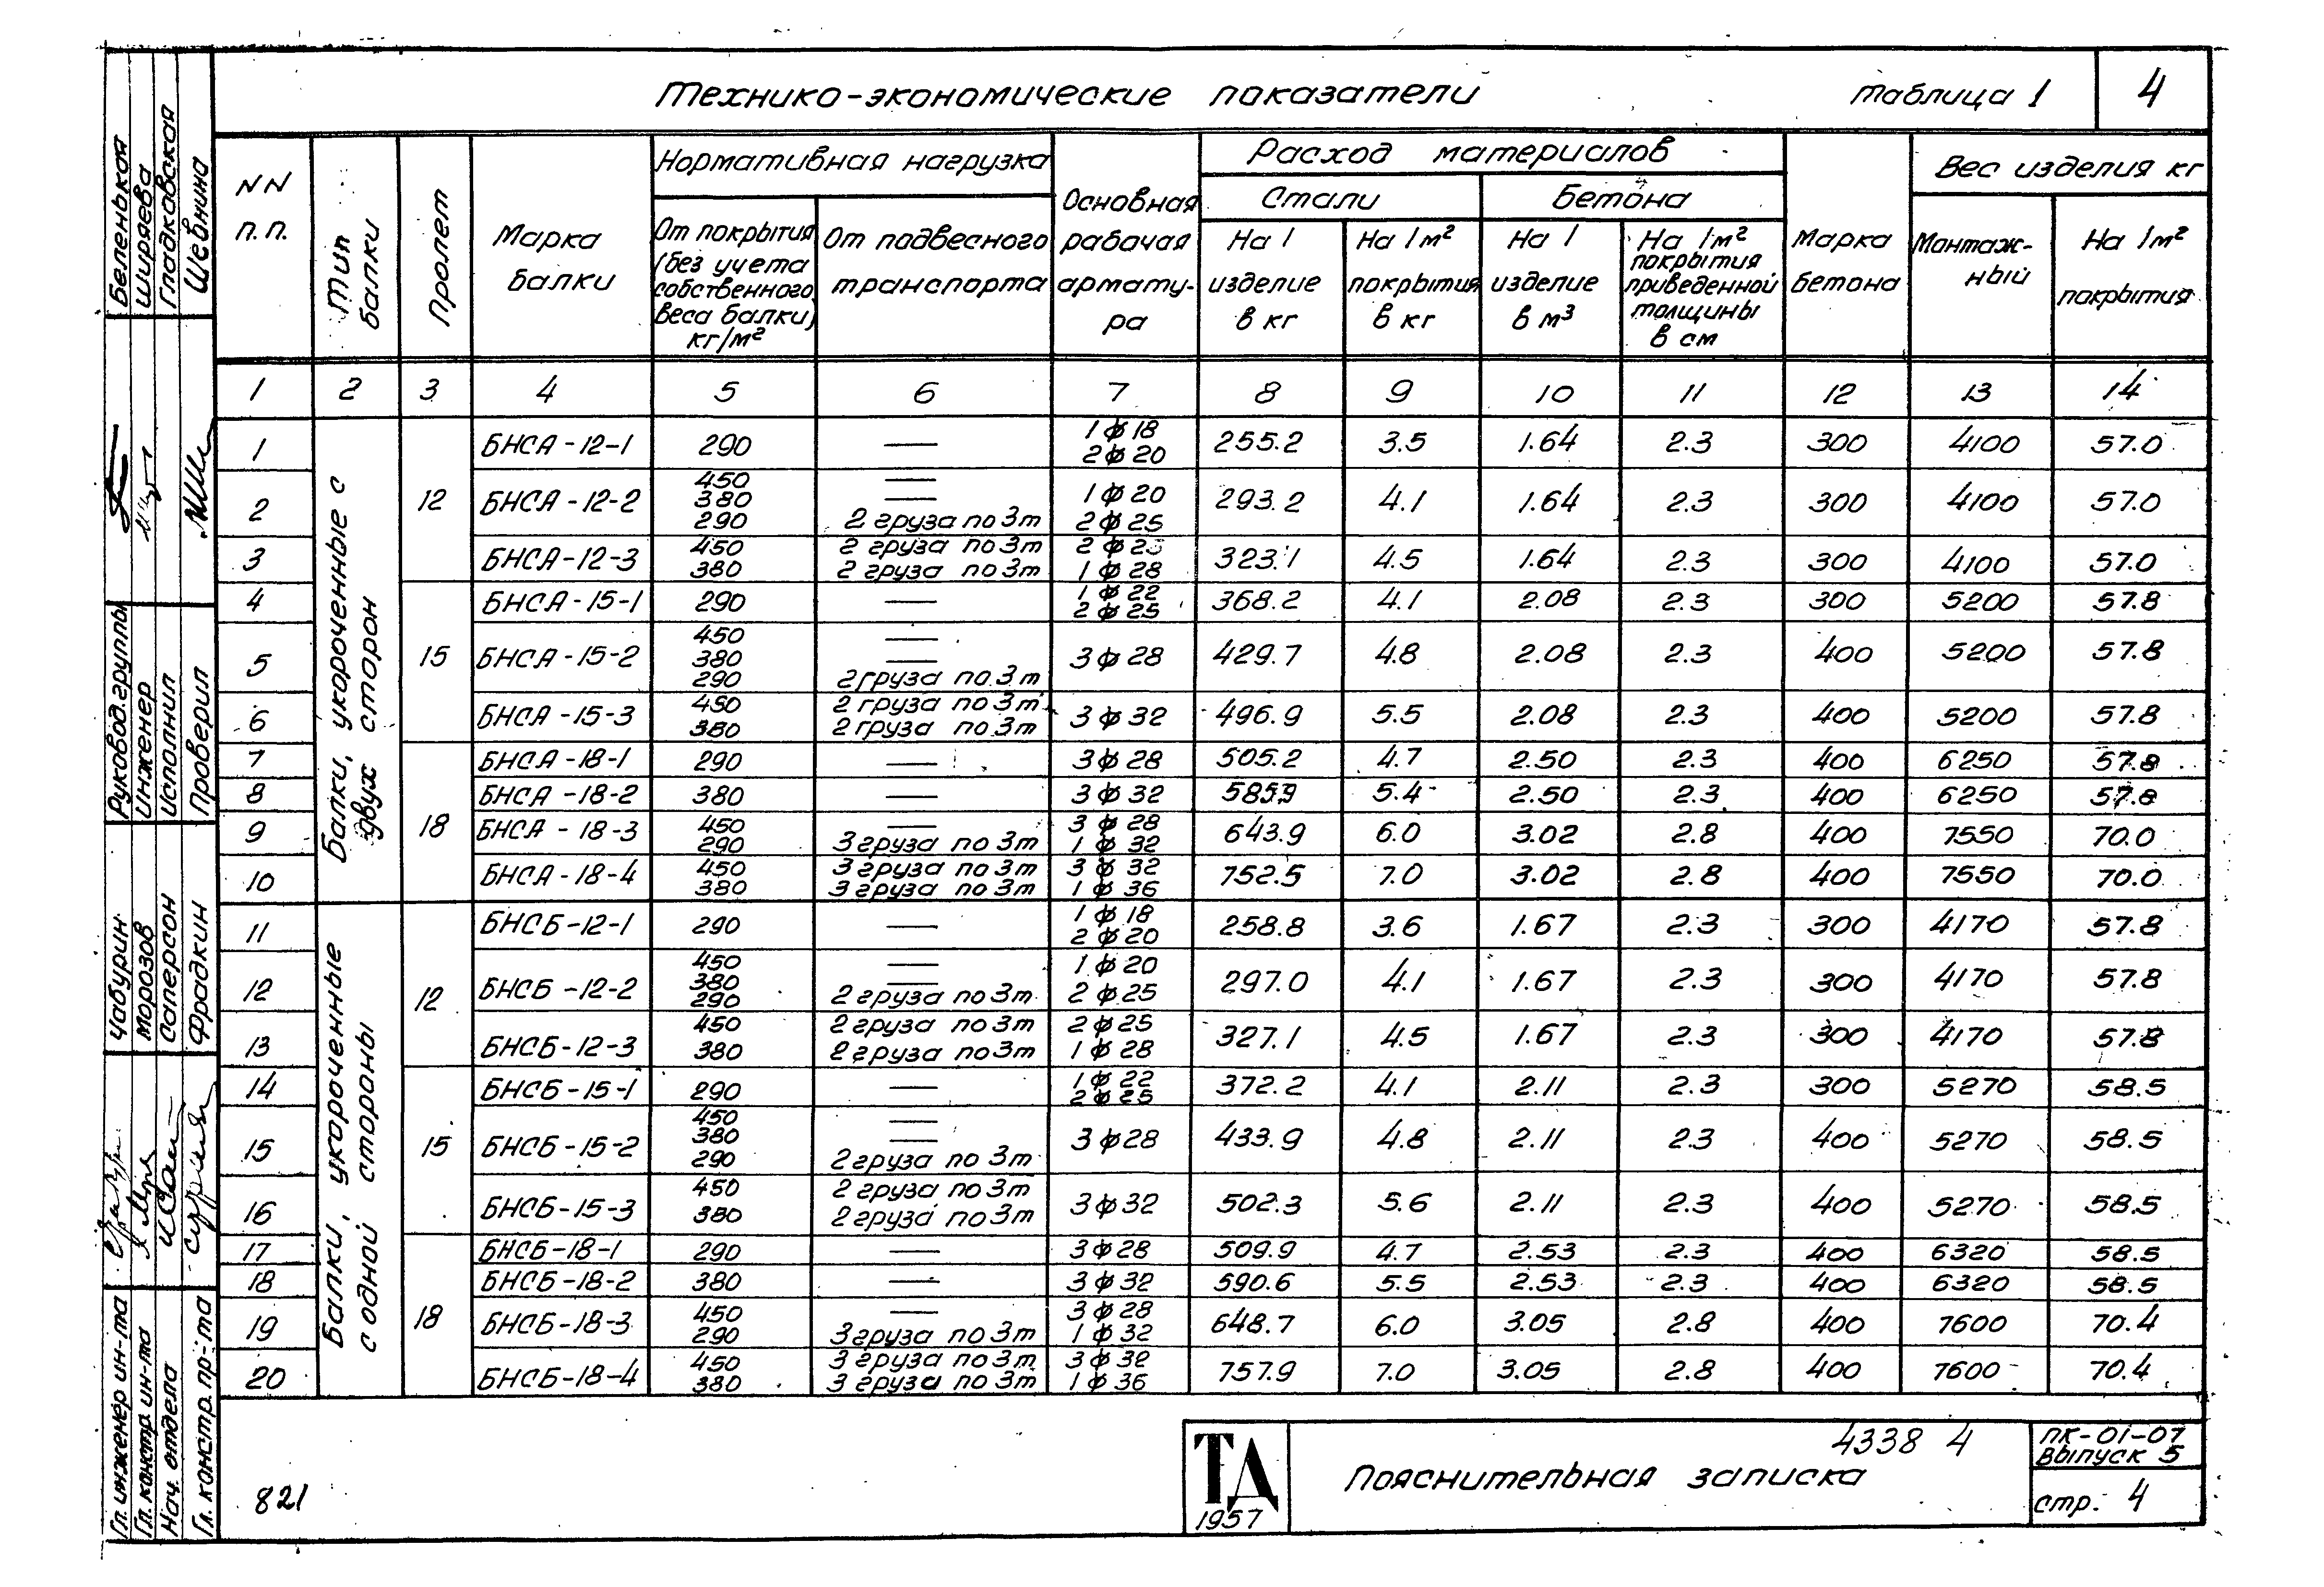 Технико-экономические показатели Таблица 1 4
NN п.п.
Тип балки
Пролет
Марка балки
Нормативная нагрузка
От покрытия (без учета собственного веса балки) кг/м²
От подвесного транспорта
Основная рабачая армату-ра
Расход материалов
Стали
На 1 изделие в кг
На 1м² покрытия в кг
Бетона
На 1 изделие в м³
На 1м² покрытия приведенной толщины в см
Марка бетона
Вес изделия кг
Монтаж-ный
На 1м² покрытия
1 2 3 4 5 6 7 8 9 10 11 12 13 14
Балки, укороченные с двух сторон
12
1 БНСА-12-1 290 — 1ф18 2ф20 255.2 3.5 1.64 2.3 300 4100 57.0
2 БНСА-12-2 450 — 380 — 290 2 груза по 3т 1ф20 2ф25 293.2 4.1 1.64 2.3 300 4100 57.0
3 БНСА-12-3 450 2 груза по 3т 380 2 груза по 3т 2ф25 1ф28 323.1 4.5 1.64 2.3 300 4100 57.0
15
4 БНСА-15-1 290 — 1ф22 2ф25 368.2 4.1 2.08 2.3 300 5200 57.8
5 БНСА-15-2 450 — 380 — 290 2 груза по 3т 3ф28 429.7 4.8 2.08 2.3 400 5200 57.8
6 БНСА-15-3 450 2 груза по 3т 380 2 груза по 3т 3ф32 496.9 5.5 2.08 2.3 400 5200 57.8
18
7 БНСА-18-1 290 — 3ф28 505.2 4.7 2.50 2.3 400 6250 57.8
8 БНСА-18-2 380 — 3ф32 5.4 2.50 2.3 400 6250 57.8
9 БНСА-18-3 450 — 290 3 груза по 3т 3ф28 1ф32 643.9 6.0 3.02 2.8 400 7550 70.0
10 БНСА-18-4 450 3 груза по 3т 380 3 груза по 3т 3ф32 1ф36 752.5 7.0 3.02 2.8 400 7550 70.0
Балки, укороченные с одной стороны
12
11 БНСБ-12-1 290 — 1ф18 2ф20 258.8 3.6 1.67 2.3 300 4170 57.8
12 БНСБ-12-2 450 — 380 — 290 2 груза по 3т 1ф20 2ф25 297.0 4.1 1.67 2.3 300 4170 57.8
13 БНСБ-12-3 450 2 груза по 3т 380 2 груза по 3т 2ф25 1ф28 327.1 4.5 1.67 2.3 300 4170 57.8
15
14 БНСБ-15-1 290 — 1ф22 2ф25 372.2 4.1 2.11 2.3 300 5270 58.5
15 БНСБ-15-2 450 — 380 — 290 2 груза по 3т 3ф28 433.9 4.8 2.11 2.3 400 5270 58.5
16 БНСБ-15-3 450 2 груза по 3т 380 2 груза по 3т 3ф32 502.3 5.6 2.11 2.3 400 5270 58.5
18
17 БНСБ-18-1 290 — 3ф28 509.9 4.7 2.53 2.3 400 6320 58.5
18 БНСБ-18-2 380 — 3ф32 590.6 5.5 2.53 2.3 400 6320 58.5
19 БНСБ-18-3 450 — 290 3 груза по 3т 3ф28 1ф32 648.7 6.0 3.05 2.8 400 7600 70.4
20 БНСБ-18-4 450 3 груза по 3т 380 3 груза по 3т 3ф32 1ф36 757.9 7.0 3.05 2.8 400 7600 70.4
821
ТД
1957
Пояснительная записка
4338 4
ПК-01-07
Выпуск 5
стр. 4
Гл. инженер ин-та Чабурин Руковод. группы Беленькая
Гл. констр. ин-та Морозов Инженер Ширяева
Нач. отдела Саперсон Исполнил Гладковская
Гл. констр. пр-та Фрадкин Проверил Шебнина